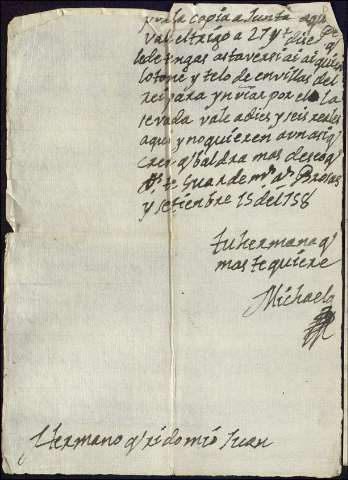 por la copia a Junta aqui
vale el trigo a 27 y dice
lo detengas asta ver si ai quien
lo tone y telo de en villas del
rei para ynviar por el la
sevada vale a dies y seis reales
aqui y no quieren aun asi q
creo q baldra mas deseo q
Ds te Guarde ms as Brosas
y setienbre 15 del 758
tu hermana q
mas te quiere
Michaela
Hermano qridomio Juan